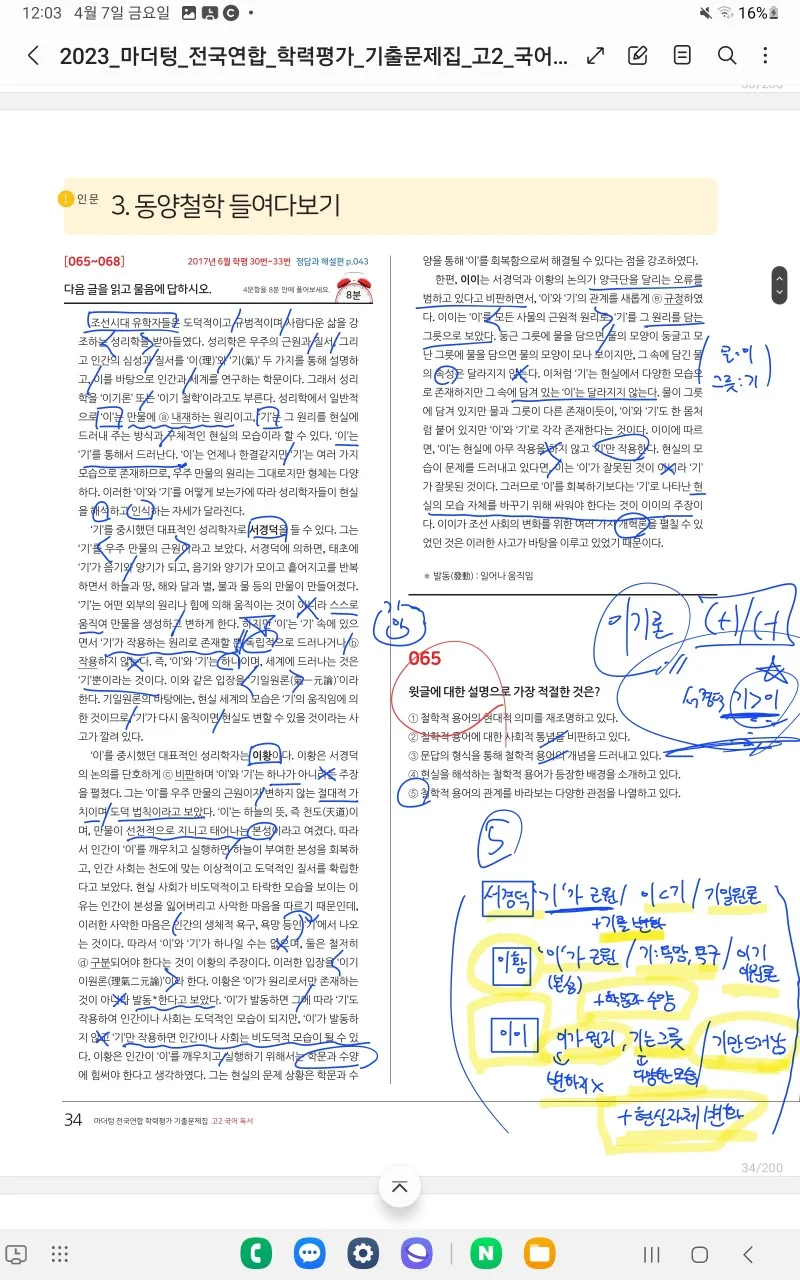 12:03 4월 7일 금요일
16%
2023_마더텅_전국연합_학력평가_기출문제집_고2_국어...
인문 3. 동양철학 들여다보기
[065~068] 2017년 6월 학평 30번~33번 정답과 해설편 p.043
다음 글을 읽고 물음에 답하시오. 4문항을 8분 안에 풀어보세요. 8분
조선시대 유학자들은 도덕적이고 규범적이며 사람다운 삶을 강
조하는 성리학을 받아들였다. 성리학은 우주의 근원과 질서, 그리
고 인간의 심성과 질서를 ‘이(理)’와 ‘기(氣)’ 두 가지를 통해 설명하
고, 이를 바탕으로 인간과 세계를 연구하는 학문이다. 그래서 성리
학을 ‘이기론’ 또는 ‘이기 철학’이라고도 부른다. 성리학에서 일반적
으로 ‘이’는 만물에 ⓐ 내재하는 원리이고, ‘기’는 그 원리를 현실에
드러내 주는 방식과 구체적인 현실의 모습이라 할 수 있다. ‘이’는
‘기’를 통해서 드러난다. ‘이’는 언제나 한결같지만 ‘기’는 여러 가지
모습으로 존재하므로, 우주 만물의 원리는 그대로지만 형체는 다양
하다. 이러한 ‘이’와 ‘기’를 어떻게 보는가에 따라 성리학자들이 현실
을 해석하고 인식하는 자세가 달라진다.
‘기’를 중시했던 대표적인 성리학자로 서경덕을 들 수 있다. 그는
‘기’를 우주 만물의 근원이라고 보았다. 서경덕에 의하면, 태초에
‘기’가 음기와 양기가 되고, 음기와 양기가 모이고 흩어지고를 반복
하면서 하늘과 땅, 해와 달과 별, 불과 물 등의 만물이 만들어졌다.
‘기’는 어떤 외부의 원리나 힘에 의해 움직이는 것이 아니라 스스로
움직여 만물을 생성하고 변하게 한다. 하지만 ‘이’는 ‘기’ 속에 있으
면서 ‘기’가 작용하는 원리로 존재할 뿐 독립적으로 드러나거나 ⓑ
작용하지 않는다. 즉, ‘이’와 ‘기’는 하나이며, 세계에 드러나는 것은
‘기’뿐이라는 것이다. 이와 같은 입장을 ‘기일원론(氣一元論)’이라
한다. 기일원론의 바탕에는, 현실 세계의 모습은 ‘기’의 움직임에 의
한 것이므로, ‘기’가 다시 움직이면 현실도 변할 수 있을 것이라는 사
고가 깔려 있다.
‘이’를 중시했던 대표적인 성리학자는 이황이다. 이황은 서경덕
의 논의를 단호하게 ⓒ 비판하며 ‘이’와 ‘기’는 하나가 아니라는 주장
을 펼쳤다. 그는 ‘이’를 우주 만물의 근원이자 변하지 않는 절대적 가
치이며 도덕 법칙이라고 보았다. ‘이’는 하늘의 뜻, 즉 천도(天道)이
며, 만물이 선천적으로 지니고 태어나는 본성이라고 여겼다. 따라
서 인간이 ‘이’를 깨우치고 실행하면 하늘이 부여한 본성을 회복하
고, 인간 사회는 천도에 맞는 이상적이고 도덕적인 질서를 확립한
다고 보았다. 현실 사회가 비도덕적이고 타락한 모습을 보이는 이
유는 인간이 본성을 잃어버리고 사악한 마음을 따르기 때문인데,
이러한 사악한 마음은 인간의 생체적 욕구, 욕망 등인 ‘기’에서 나오
는 것이다. 따라서 ‘이’와 ‘기’가 하나일 수는 없으며, 둘은 철저히
ⓓ 구분되어야 한다는 것이 이황의 주장이다. 이러한 입장을 ‘이기
이원론(理氣二元論)’이라 한다. 이황은 ‘이’가 원리로서만 존재하는
것이 아니라 발동*한다고 보았다. ‘이’가 발동하면 그에 따라 ‘기’도
작용하여 인간이나 사회는 도덕적인 모습이 되지만, ‘이’가 발동하
지 않고 ‘기’만 작용하면 인간이나 사회는 비도덕적 모습이 될 수 있
다. 이황은 인간이 ‘이’를 깨우치고 실행하기 위해서는 학문과 수양
에 힘써야 한다고 생각하였다. 그는 현실의 문제 상황은 학문과 수
양을 통해 ‘이’를 회복함으로써 해결될 수 있다는 점을 강조하였다.
한편, 이이는 서경덕과 이황의 논의가 양극단을 달리는 오류를
범하고 있다고 비판하면서, ‘이’와 ‘기’의 관계를 새롭게 ⓔ 규정하였
다. 이이는 ‘이’를 모든 사물의 근원적 원리로, ‘기’를 그 원리를 담는
그릇으로 보았다. 둥근 그릇에 물을 담으면 물의 모양이 둥글고 모
난 그릇에 물을 담으면 물의 모양이 모나 보이지만, 그 속에 담긴 물
의 속성은 달라지지 않는다. 이처럼 ‘기’는 현실에서 다양한 모습으
로 존재하지만 그 속에 담겨 있는 ‘이’는 달라지지 않는다. 물이 그릇
에 담겨 있지만 물과 그릇이 다른 존재이듯이, ‘이’와 ‘기’도 한 몸처
럼 붙어 있지만 ‘이’와 ‘기’로 각각 존재한다는 것이다. 이이에 따르
면, ‘이’는 현실에 아무 작용을 하지 않고 ‘기’만 작용한다. 현실의 모
습이 문제를 드러내고 있다면, 이는 ‘이’가 잘못된 것이 아니라 ‘기’
가 잘못된 것이다. 그러므로 ‘이’를 회복하기보다는 ‘기’로 나타난 현
실의 모습 자체를 바꾸기 위해 싸워야 한다는 것이 이이의 주장이
다. 이이가 조선 사회의 변화를 위한 여러 가지 개혁론을 펼칠 수 있
었던 것은 이러한 사고가 바탕을 이루고 있었기 때문이다.
물:이
그릇:기
* 발동(發動) : 일어나 움직임
이기론
서경덕 기>이
065
윗글에 대한 설명으로 가장 적절한 것은?
① 철학적 용어의 현대적 의미를 재조명하고 있다.
② 철학적 용어에 대한 사회적 통념을 비판하고 있다.
③ 문답의 형식을 통해 철학적 용어의 개념을 드러내고 있다.
④ 현실을 해석하는 철학적 용어가 등장한 배경을 소개하고 있다.
⑤ 철학적 용어의 관계를 바라보는 다양한 관점을 나열하고 있다.
5
서경덕 '기'가 근원/ 이<기/ 기일원론
+기를 변화
이황 '이'가 근원/ 기:욕망,욕구/ 이기
(본성) 이원론
+학문과 수양
이이 이가 원리, 기는 그릇/ 기만 드러남
변하지x 다양한 모습/
+현실자체/변화
34 마더텅 전국연합 학력평가 기출문제집 고2 국어 독서
34/200